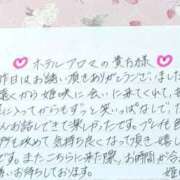 ♡ ホテルアロマの貴方様 ♡
昨日はお誘い頂きありがとうございました
遠くから姫咲に会いに来てくれて、
に入ってからもずっと笑いっぱなしで、た
んお話しできて楽しかったです。プレイも
所も攻めて気持ち良くなって頂き嬉し
たです。またこちらに来た際、お時間が合
お待ちしております。